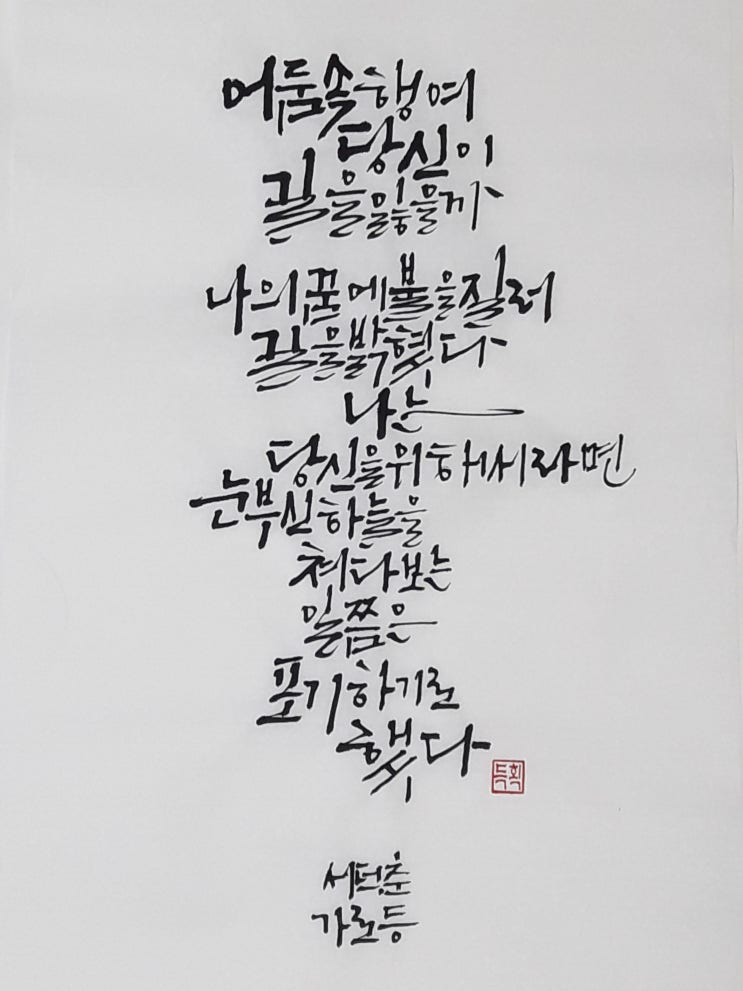 어둠속행여
당신이
길을잃을까
나의꿈에불을질러
길을밝혔다
나는
당신을위해서라면
눈부신하늘을
쳐다보는
일쯤은
포기하기로
했다
서덕춘
가로등